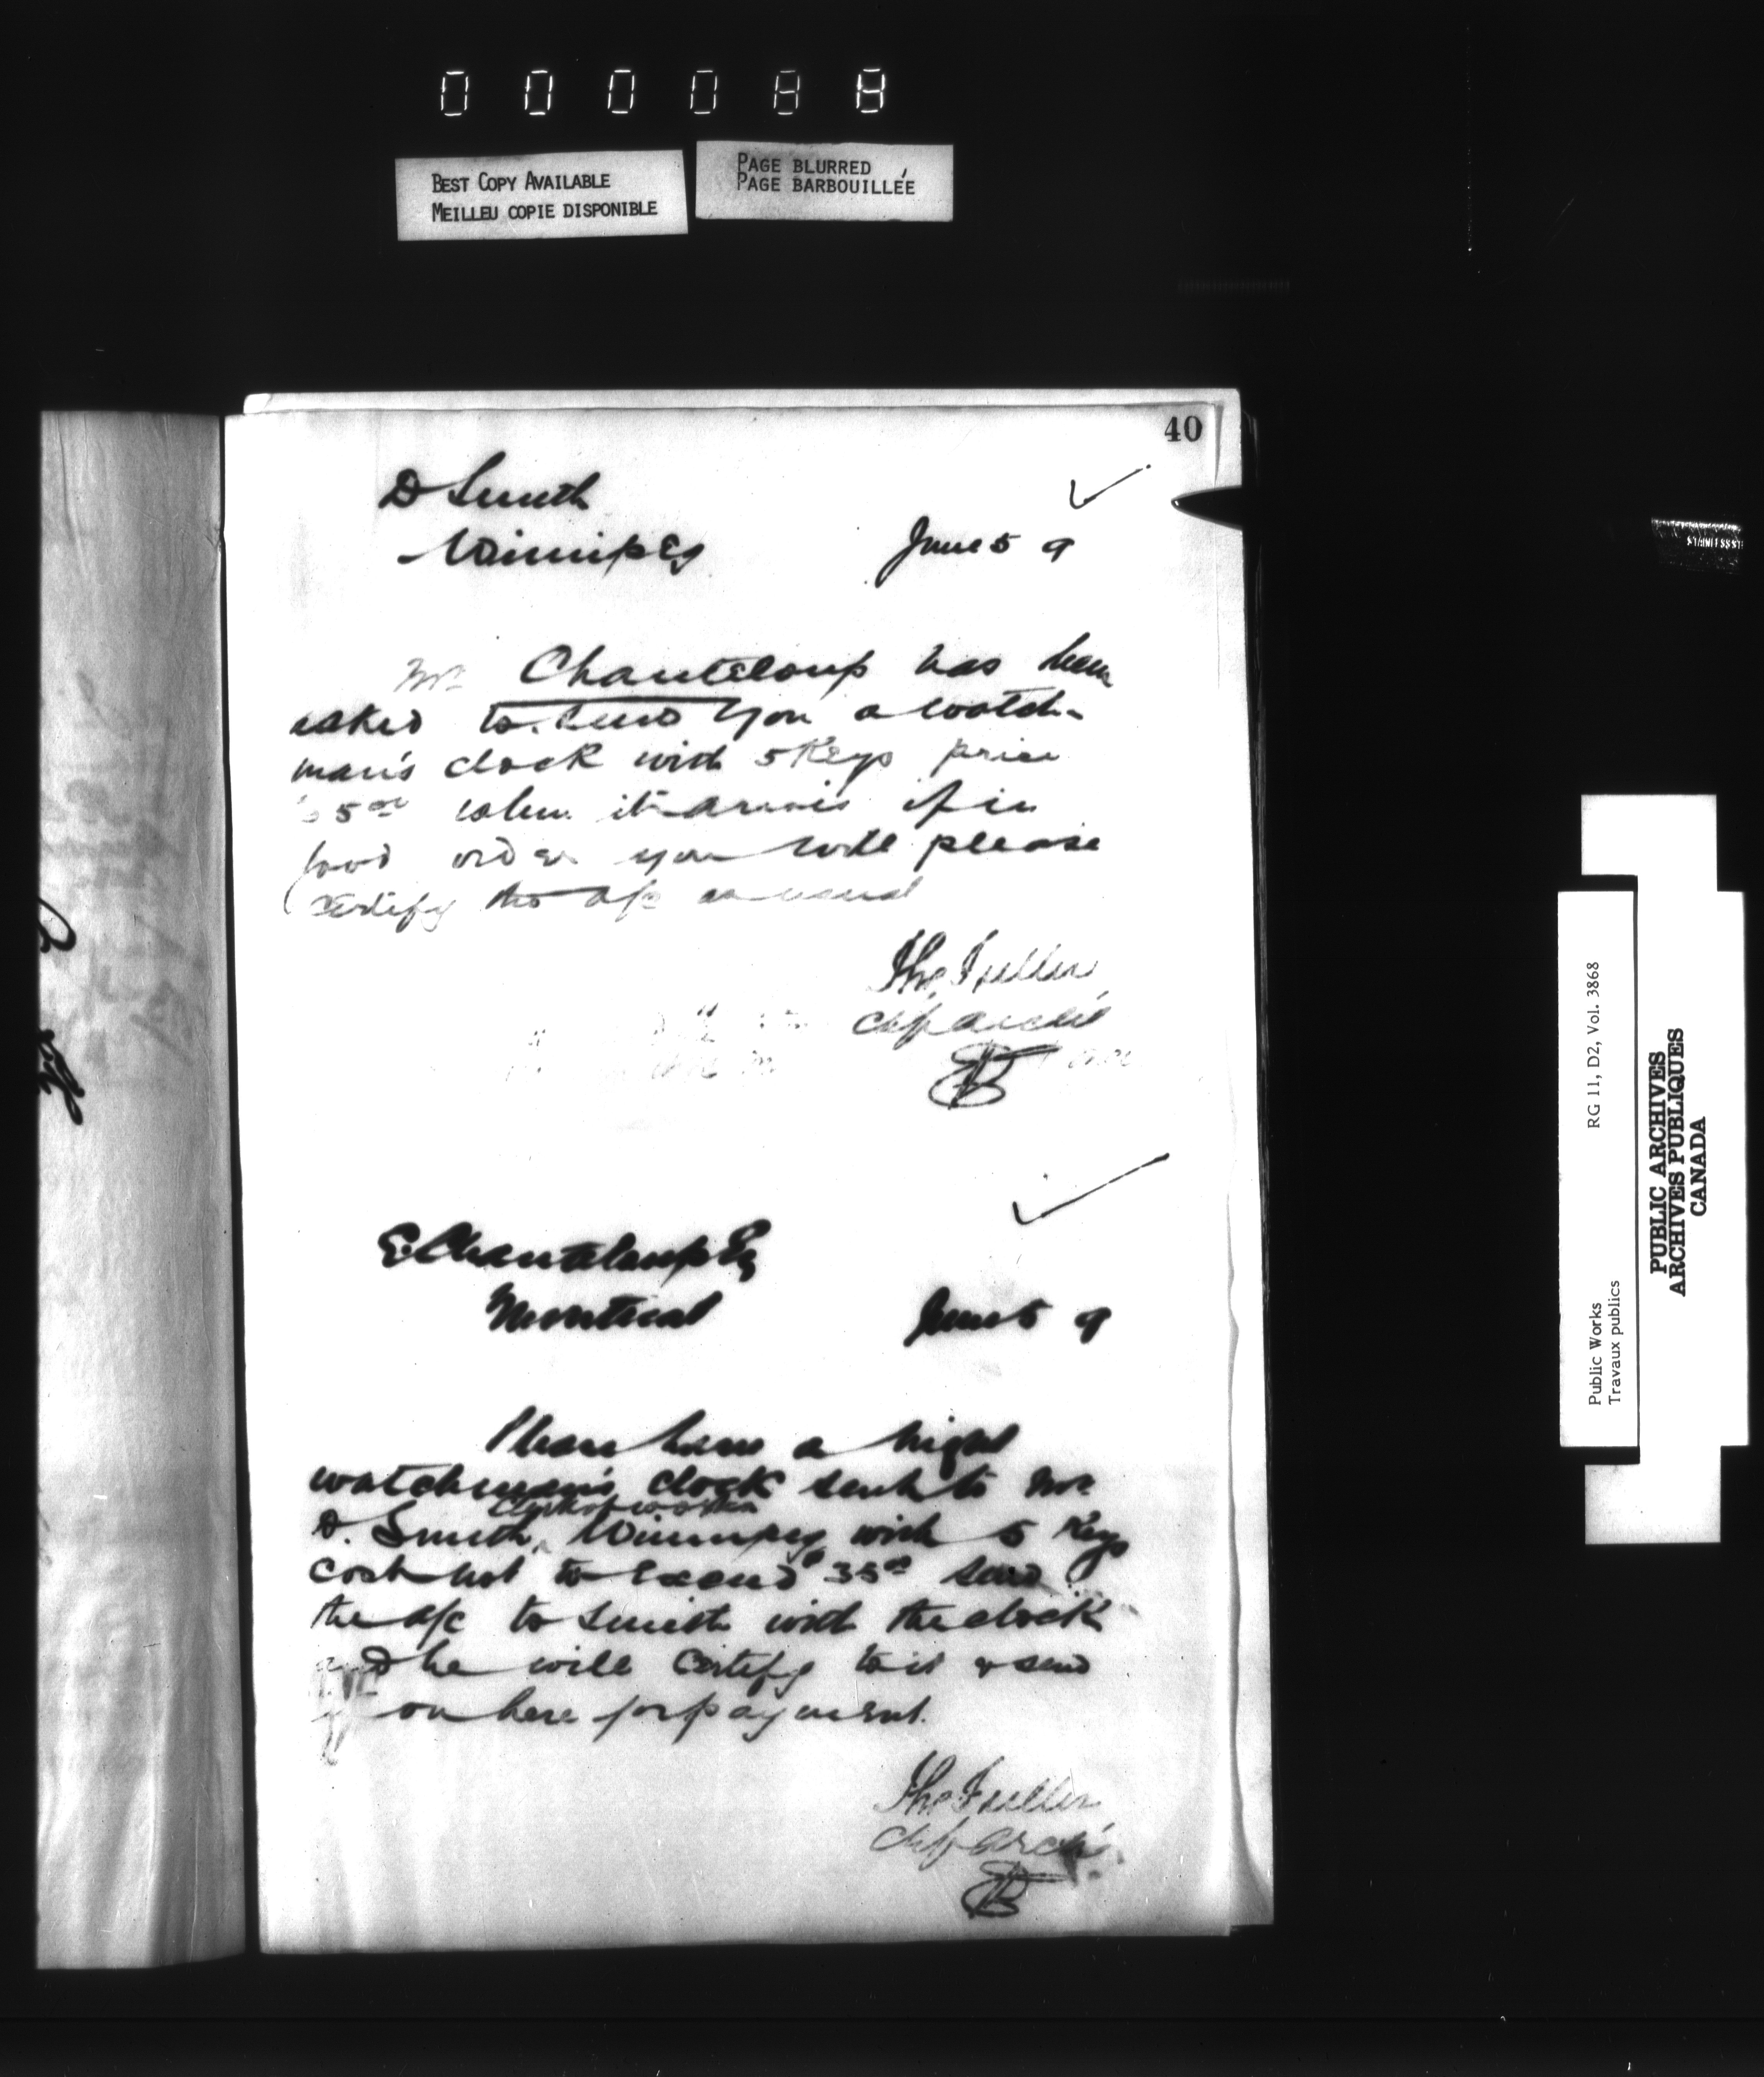 000088
BEST COPY AVAILABLE
MEILLEU COPIE DISPONIBLE
PAGE BLURRED
PAGE BARBOUILLÉE
40
D Smith
Winnipeg June 5 9
Mr Chanteloup has been
asked to send you a watch-
man's clock with 5 Keys price
35 00 when it arrives if in
good order you will please
certify the a/c as usual
Tho Fuller
Chf Archt
E. Chanteloup Esq
Montreal June 5 9
Please have a night
watchman's clock sent to Mr
Clerk of works
D. Smith, Winnipeg with 5 Keys
cost not to exceed $35 00 send
the a/c to Smith with the clock
and he will certify to it & send
on here for payment.
Tho Fuller
Chf Archt
RG 11, D2, Vol. 3868
Public Works
Travaux publics
PUBLIC ARCHIVES
ARCHIVES PUBLIQUES
CANADA